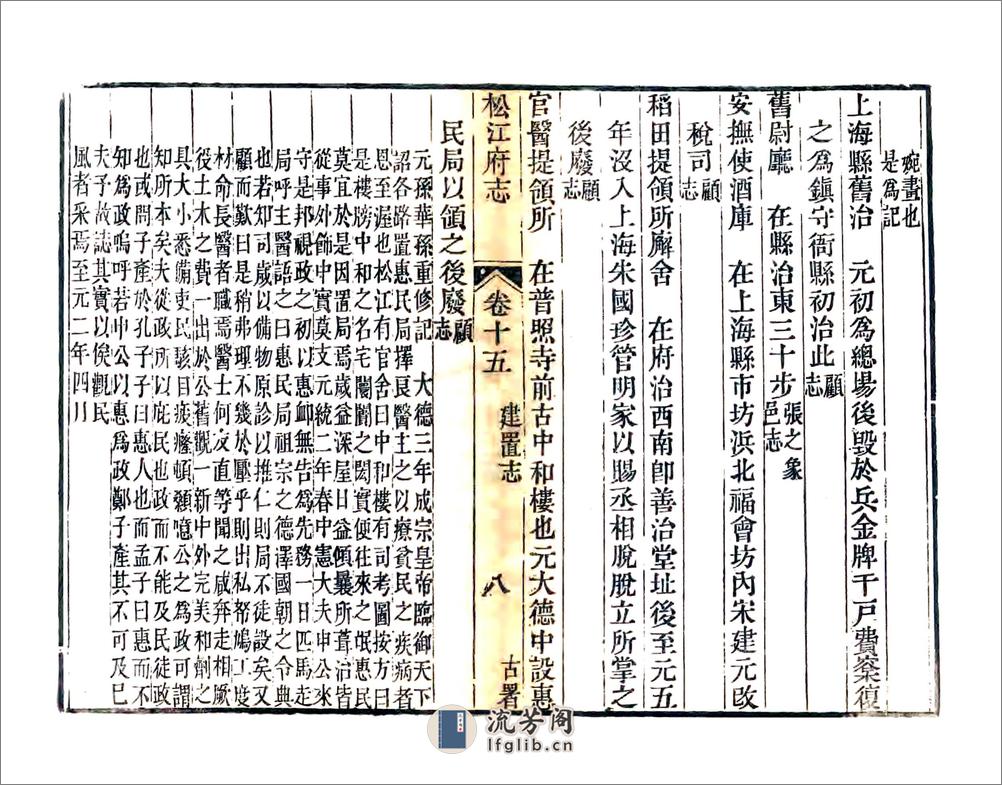 畫也
是爲記
上海縣舊治　元初爲總場後毀於兵金牌千戸費窠復
之爲鎮守衙縣初治此顧志
舊尉廳　在縣治東三十步張之象邑志
安撫使酒庫　在上海縣市坊浜北福會坊內宋建元改
稅司顧志
稻田提領所廨舍　在府治西南卽善治堂址後至元五
年沒入上海朱國珍管明家以賜丞相脫脫立所掌之
後廢顧志
官醫提領所　在普照寺前古中和樓也元大德中設惠
松江府志　卷十五　建置志　八　古署
民局以領之後廢顧志
元孫華孫重修記　大德三年成宗皇帝臨御天下
詔各路置惠民局擇良醫主之以療貧民之疾病者
恩至渥也松江有官舍曰中和樓有司考圖按方曰
是樓牓中和之名宅闤闠之閎實便往來之氓惠民
莫宜於是因置局焉歲益深屋日益傾曩所葺治皆
從事外飾中實莫支元統二年春中憲大夫申公來
守是邦視政之初以惠䘏無告爲先務一日匹馬走
局呼主醫語之曰惠民局祖宗之德澤國朝之令典
也若知可歲以備物原診以推仁則局不徒設矣又
顧而歎曰是稍弗理不幾於壓乎則出私帑鳩工度
材命長醫者職焉醫士何友直等聞之咸奔走相厥
役土木之費一出於公舊觀一新中外完美和劑之
具大小悉備吏民駭目疲癃頓蘇噫公之爲政可謂
知所本矣夫從政所以庇民也政而不能及民徒政
也或問子產於孔子子曰惠人也而孟子曰惠而不
知爲政嗚呼若申公以惠爲政鄭子產其不可及已
夫子故誌其實以俟觀民
風者采焉至元二年四月
流芳阁
lfglib.cn